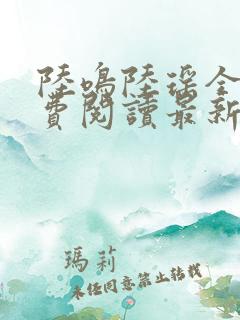 陸鳴陸瑤全
費閱讀最新
瑪莉
未經同意禁止轉載